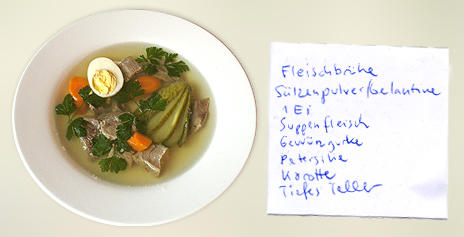 Fleischbrühe
Sülzenpulver/Gelantine
1 Ei
Suppenfleisch
Gewürzgurke
Petersilie
Karotte
Tiefes Teller